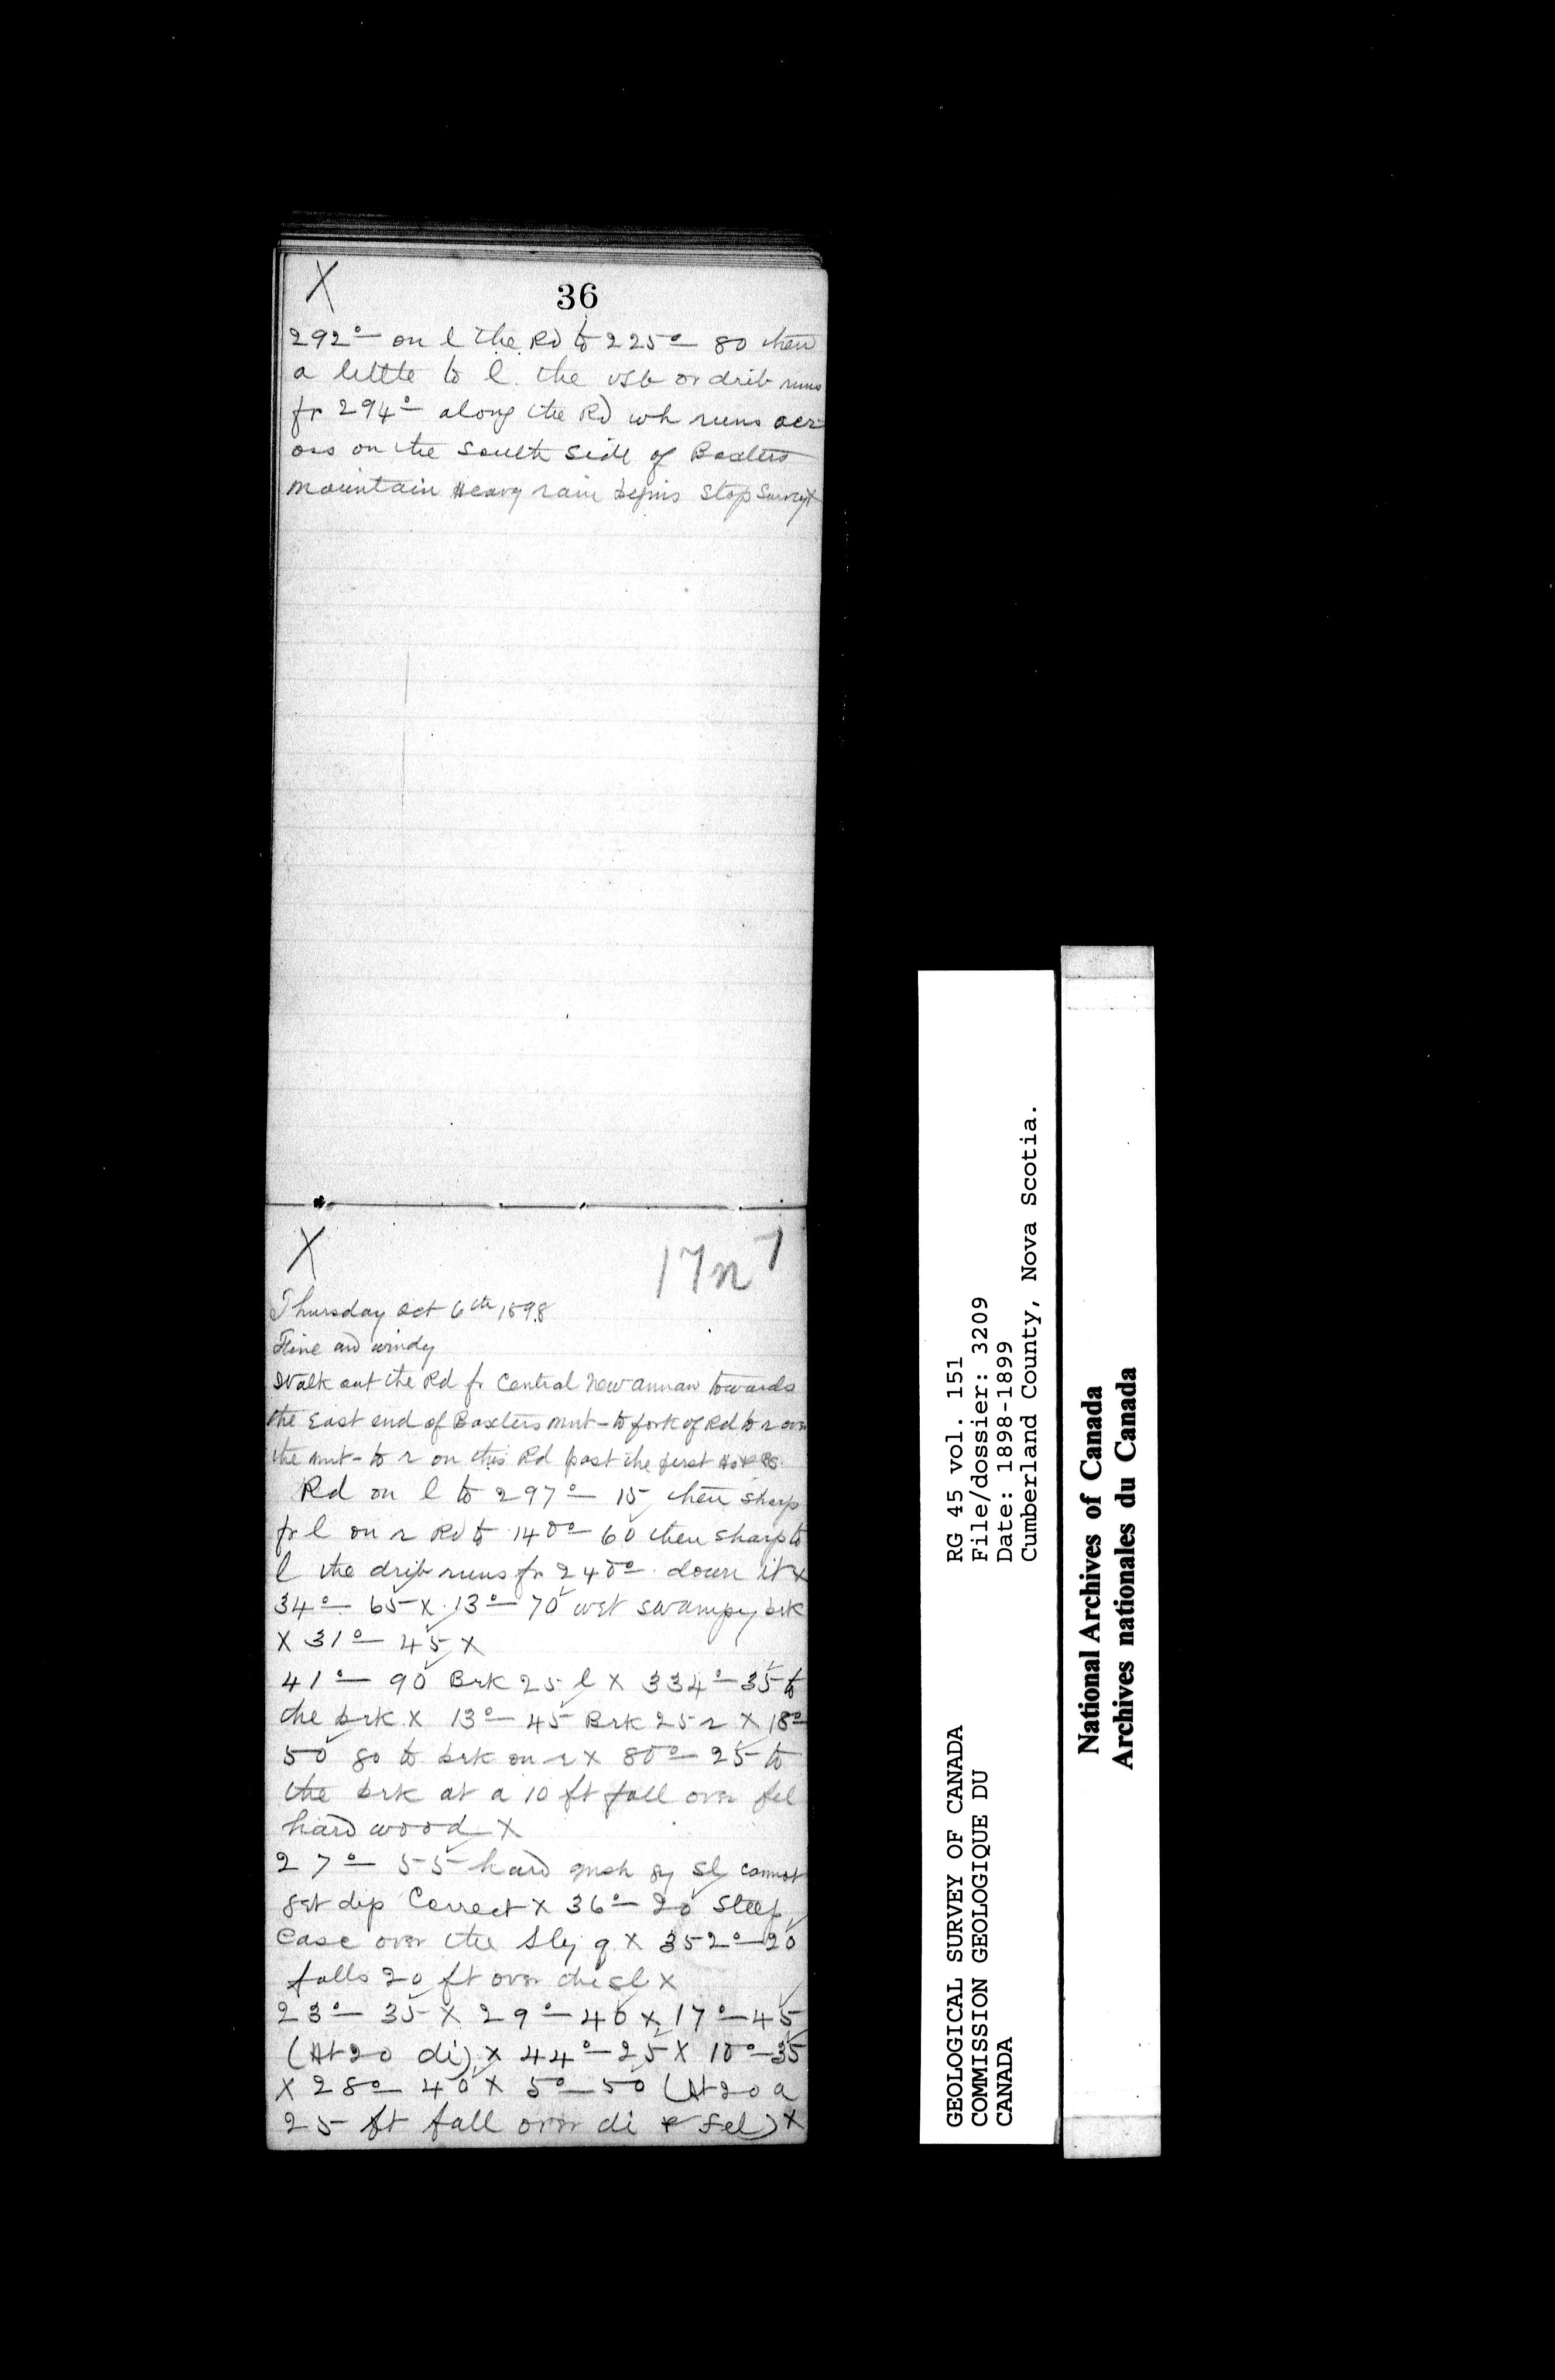 X
36
292° — on l the Rd to 225° — 80 then
a little to l. the vsb or drib runs
fr 294° along the Rd wh runs acr
oss on the South side of Baxters
mountain Heavy rain begins stop Survey X
X
17n 7
Thursday Oct 6th 1898
Fine and windy
Walk out the Rd fr Central New annan towards
the East end of Baxters mnt — to fork of Rd to r over
the mnt — to r on this Rd past the first
Rd on l to 297° — 15 then sharp
fr l on r Rd to 140° — 60 then sharp to
l the drib runs fr 240° — down it X
34° — 65 X 13° — 70 wet swampy brk
X 31° — 45 X
41° — 90 Brk 25 l X 334° — 35 to
the brk X 13° — 45 Brk 25 r X 18° —
50 go to brk on r X 80° — 25 to
the brk at a 10 ft fall over fel
hard wood X
27° — 55 hard gy sl cannot
get dip Correct X 36° — 20 Steep
Casc over the sly q X 352° — 20
falls 20 ft over the sl X
23° — 35 X 29° — 40 X 17° — 45
(At 20 di) X 44° — 25 X 10° — 35
X 28° — 40 X 5° — 50 (At 20 a
25 ft fall over di & fel) X
GEOLOGICAL SURVEY OF CANADA
COMMISSION GEOLOGIQUE DU
CANADA
RG 45 vol. 151
File/dossier: 3209
Date: 1898-1899
Cumberland County, Nova Scotia.
National Archives of Canada
Archives nationales du Canada